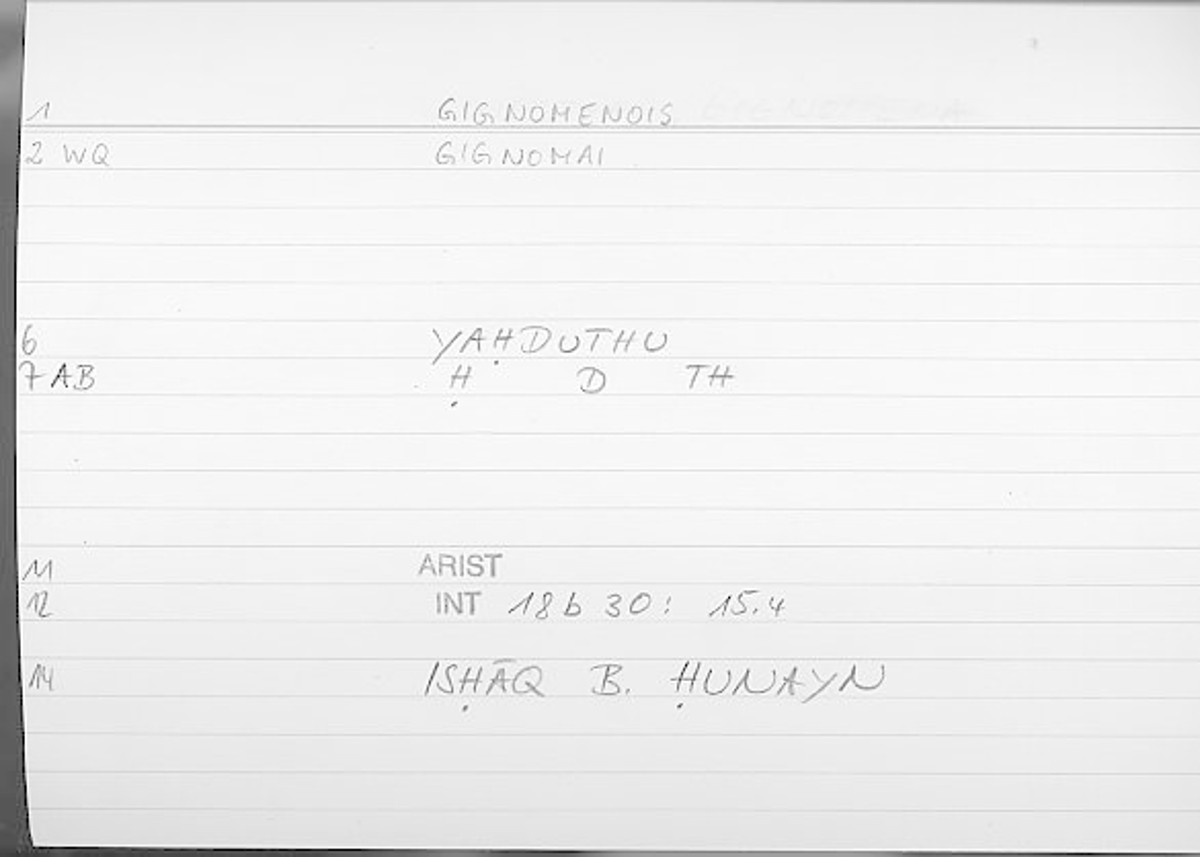 1 GIGNOMENOIS
2 WQ GIGNOMAI
6 YAḤDUTHU
7 AB Ḥ D TH
11 ARIST
12 INT 18b 30: 15.4
14 ISḤĀQ B. ḤUNAYN